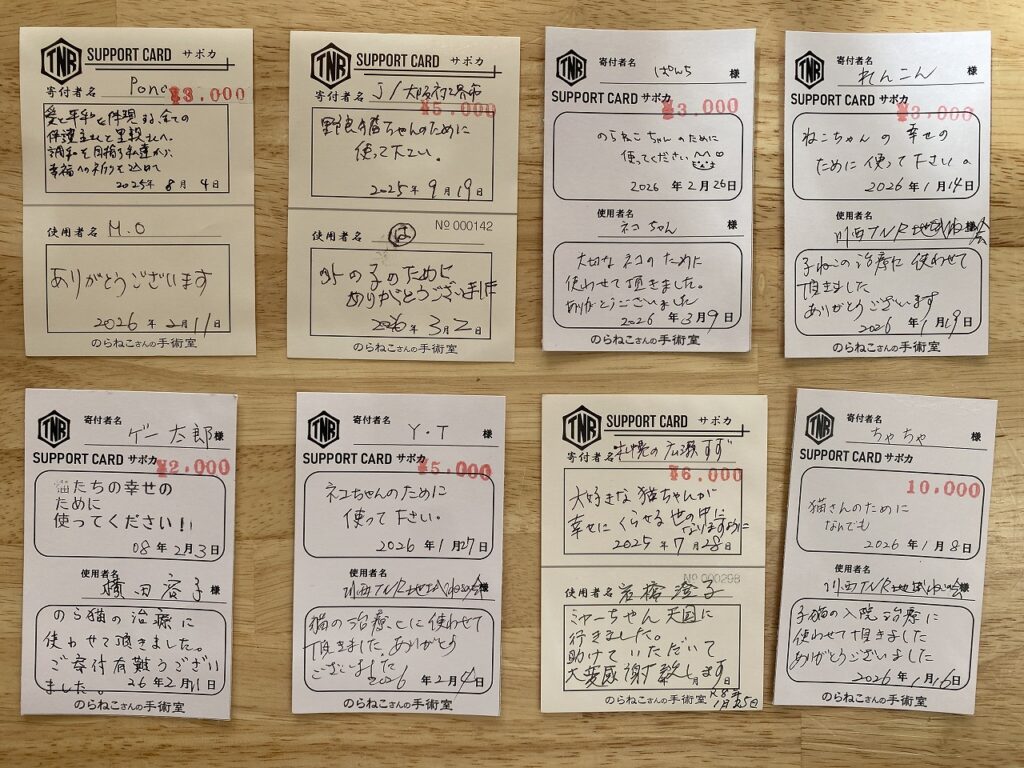 TNR SUPPORT CARD サポカ
寄付者名 Pono
¥3,000
愛と平和を体現する全ての
保護主さんと里親さんへ。
調和を目指す私達から
幸福への祈りを込めて
2025年 8月 4日
使用者名 M.O
ありがとうございます
2026年 2月11日
TNR SUPPORT CARD サポカ
寄付者名 J/大阪府堺市
¥5,000
野良猫ちゃんのために
使って下さい。
2025年 9月19日
No 000142
使用者名 は
外の子のために
ありがとうございます
2026年 3月2日
のらねこさんの手術室
TNR 寄付者名 ぱんち 様
SUPPORT CARD サポカ
¥3,000
のらねこちゃんのために
使ってください
2026年2月26日
使用者名
ネコちゃん 様
大切なネコのために
使わせて頂きました。
ありがとうございました
2026年3月9日
のらねこさんの手術室
TNR 寄付者名 れんこん 様
SUPPORT CARD サポカ
¥3,000
ねこちゃんの幸せの
ために使って下さい。
2026年1月14日
使用者名
川西TNR地域ねこの会 様
子ねこの治療に使わせて
頂きました
ありがとうございます
2026年1月19日
のらねこさんの手術室
TNR 寄付者名 ゲー太郎 様
SUPPORT CARD サポカ
¥2,000
猫たちの幸せの
ために
使ってください!!
08年2月3日
使用者名
横田容子 様
のら猫の治療に
使わせて頂きました。
ご寄付有難うござい
ました。 26年2月11日
のらねこさんの手術室
TNR 寄付者名 Y・T 様
SUPPORT CARD サポカ
¥5,000
ネコちゃんのために
使って下さい。
2026年1月27日
使用者名
川西TNR地域ねこの会 様
猫の治療に使わせて
頂きました ありがとう
ございました
2026年2月4日
のらねこさんの手術室
TNR SUPPORT CARD サポカ
寄付者名 札幌の広瀬すず
¥6,000
大好きな猫ちゃんが
幸せにくらせる世の中に
なりますように
2025年7月28日
No 000298
使用者名 岩橋澄子
ミャーちゃん天国に
行きました。
助けていただいて
大変感謝致します
R8年
1月25日
のらねこさんの手術室
TNR 寄付者名 ちゃちゃ 様
SUPPORT CARD サポカ
10,000
猫さんのために
なんでも
2026年1月8日
使用者名
川西TNR地域ねこの会 様
子猫の入院治療に
使わせて頂きました
ありがとうございました
2026年1月16日
のらねこさんの手術室